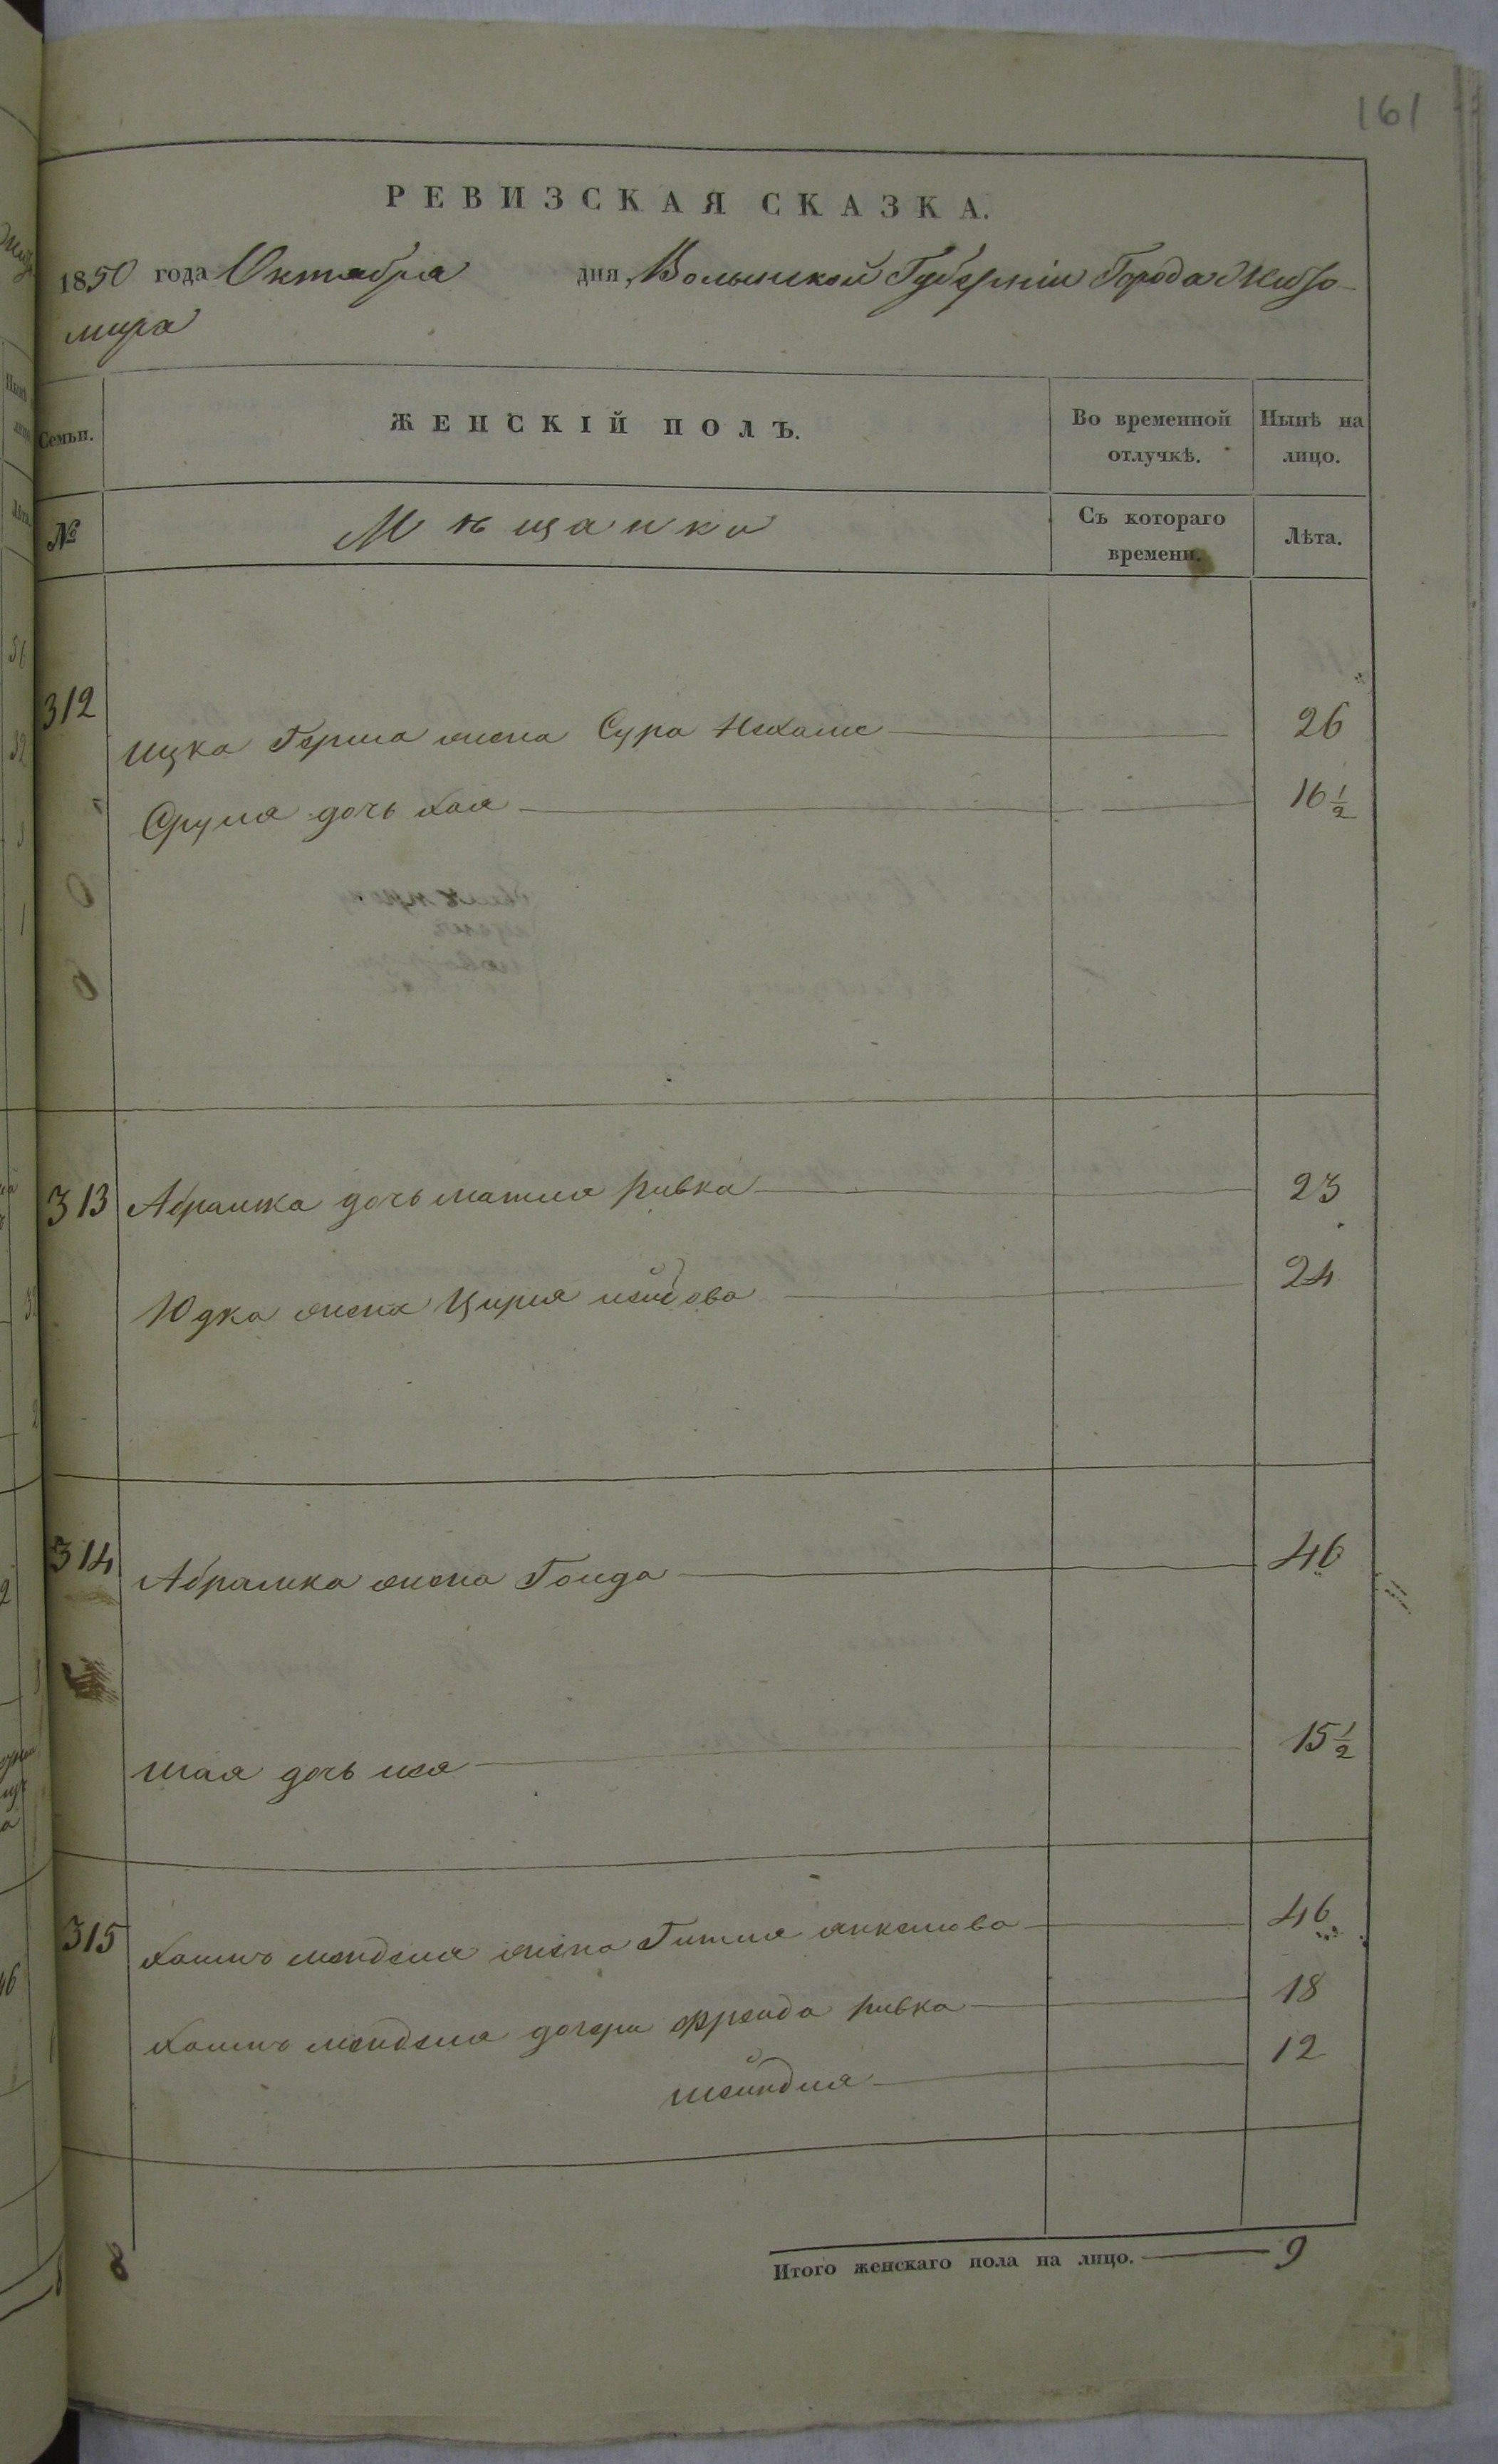 161
РЕВИЗСКАЯ СКАЗКА.
1850 года Октября дня, Волынской Губерніи Города Жито-
мира
Семьи. ЖЕНСКІЙ ПОЛЪ. Во временной отлучкѣ. Нынѣ на лицо.
№ Мѣщанки Съ котораго времени. Лѣта.
312 Ицка Герша жена Сура Нехаме 26
Сруля дочь Хая 16 1/2
313 Абрамка дочь Матля Ривка 23
Юдка жена Цирля 24
314 Абрамка жена Голда 46
Шая дочь 15 1/2
315 Хаимъ Мендела жена Гитля Анкелова 46
Хаимъ Мендела дочери Фрейда Ривка 18
Шейндля 12
8 Итого женскаго пола на лицо. 9